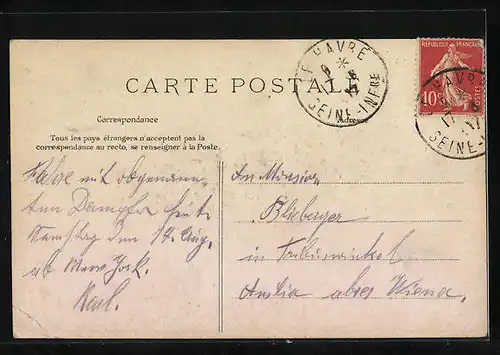 CARTE POSTALE
Correspondance
Tous les pays étrangers n'acceptent pas la
correspondance au recto, se renseigner à la Poste.
Adresse
LE HAVRE
SEINE-INFRE
REPUBLIQUE FRANÇAISE
10c
POSTES
LE HAVRE
SEINE-
Fahre mit obgenann-
ten Dampfer heute
Samstag den 17. Aug.
ab New York.
Karl.
An Monsieur
in Tribuswinkel
Austria Wiena.